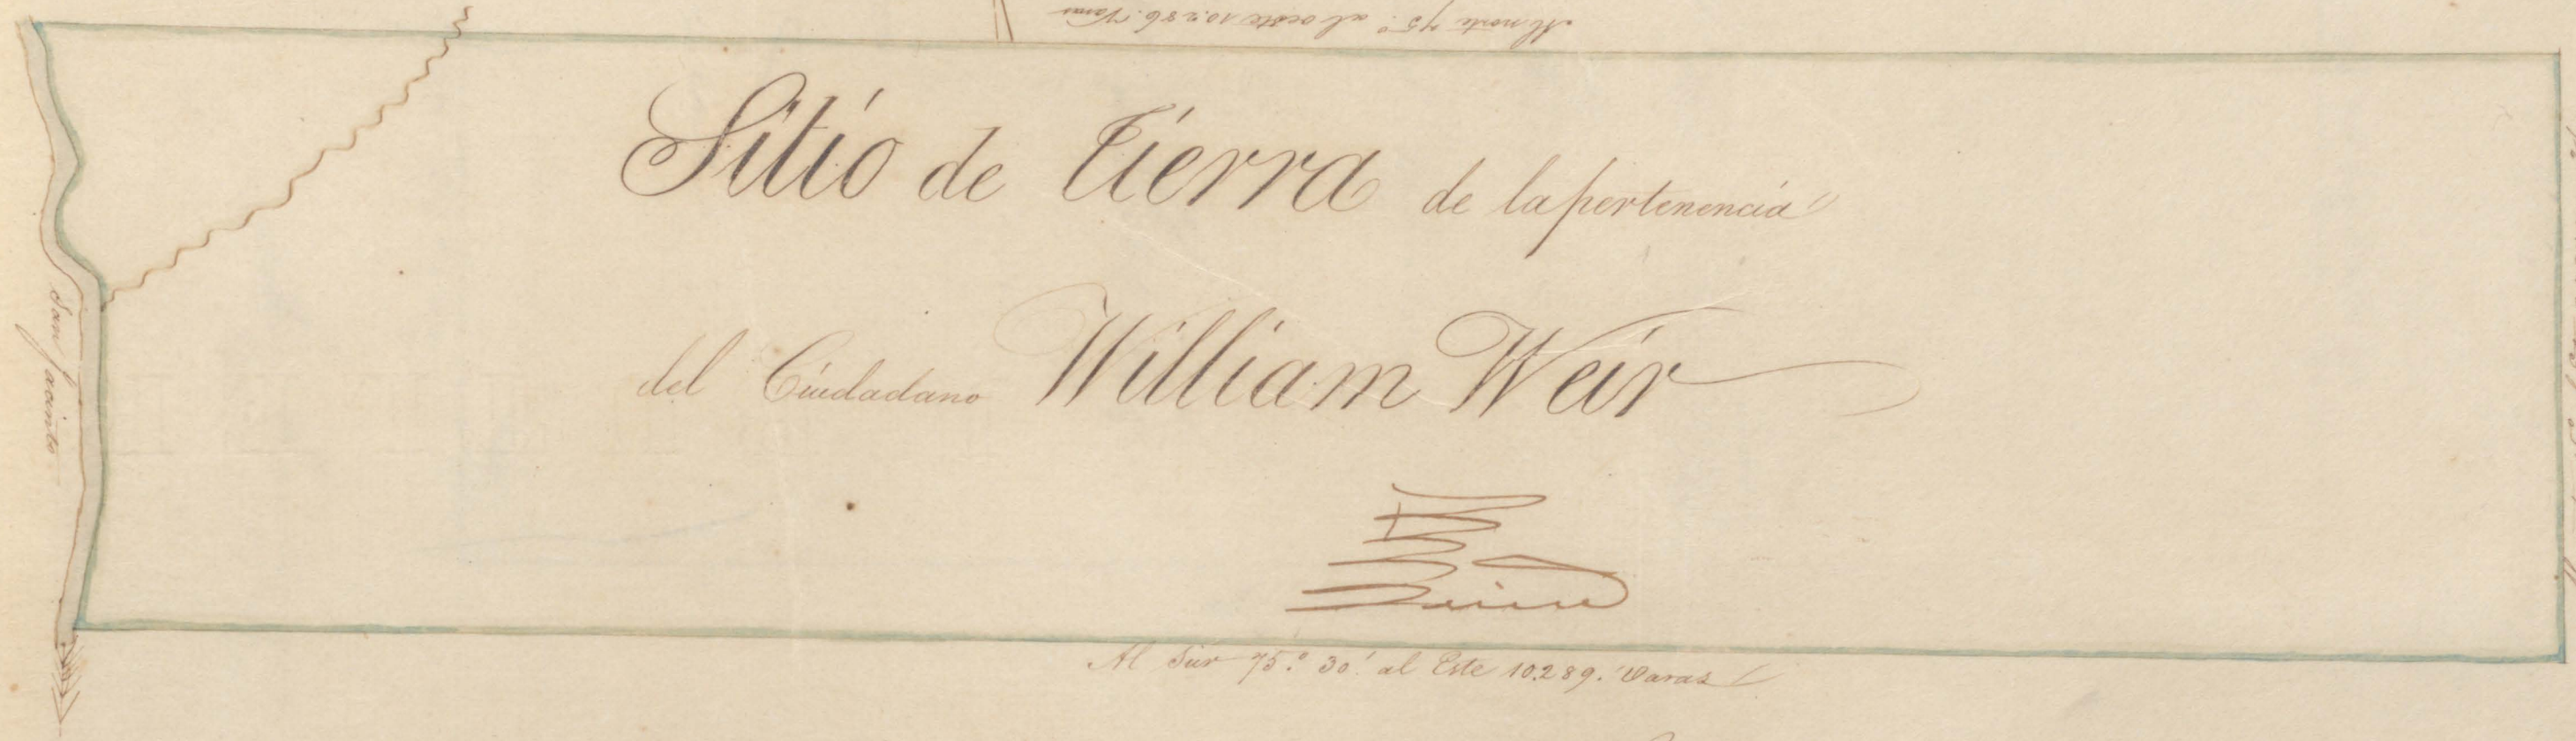 Al norte 75.° al oeste 10.286. Varas
Sitio de tierra de la pertenencia
del Ciudadano William Weir
San Jacinto
Al Sur 75.° 30.' al Este 10.289. Varas